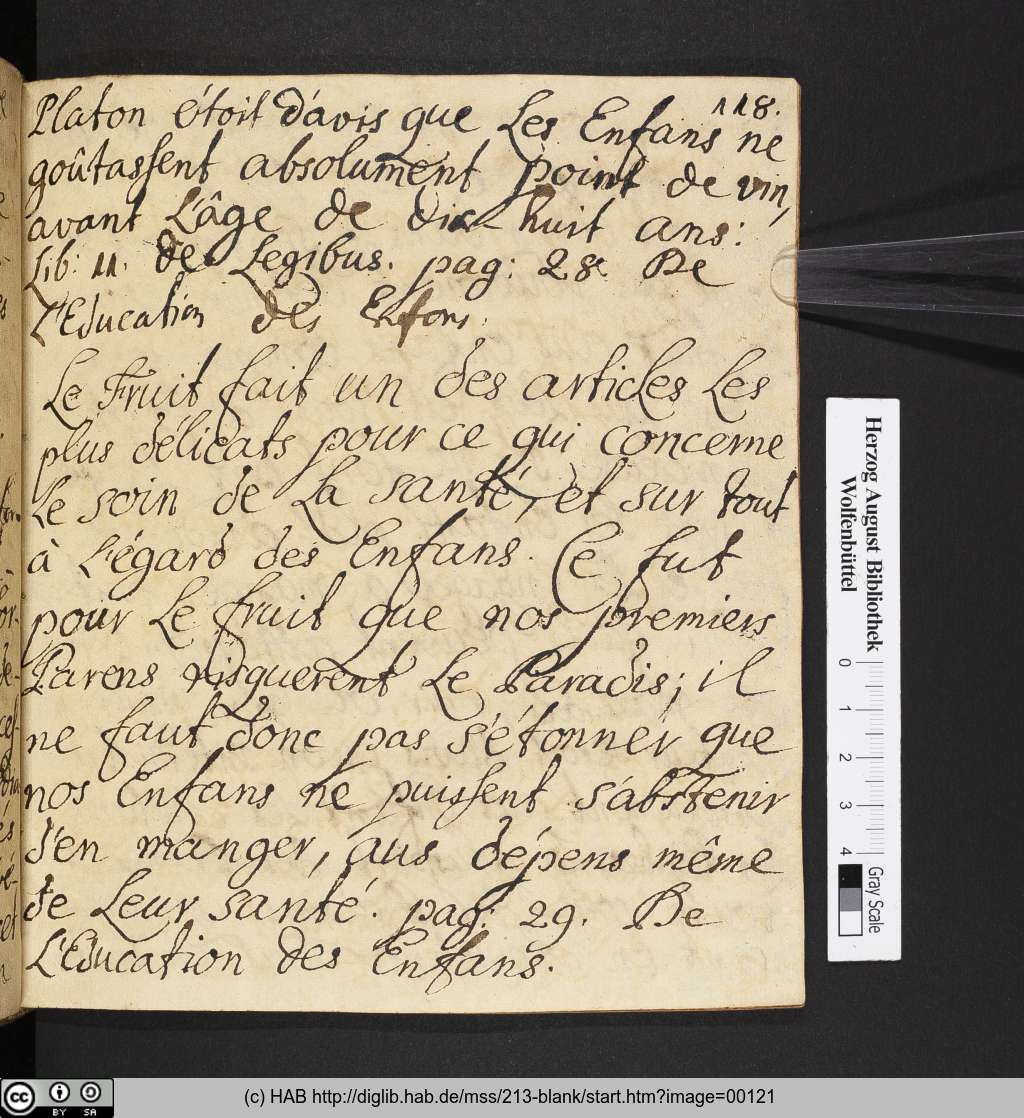 118.
Platon étoit d'avis que Les Enfans ne
goûtassent absolument point de vin,
avant L'âge de dix-huit ans:
Lib: 11. de Legibus. pag: 28. De
L'Education des Enfans.
Le Fruit fait un des articles Les
plus délicats pour ce qui concerne
Le soin de La santé, et sur tout
à L'égard des Enfans. Ce fut
pour Le fruit que nos premiers
Parens risquerent Le Paradis; il
ne faut donc pas s'étonner que
nos Enfans ne puissent s'abstenir
d'en manger, aus dépens même
de Leur santé. pag: 29. De
L'Education des Enfans.
Herzog August Bibliothek
Wolfenbüttel
0 1 2 3 4
Gray Scale
cc BY SA
(c) HAB http://diglib.hab.de/mss/213-blank/start.htm?image=00121